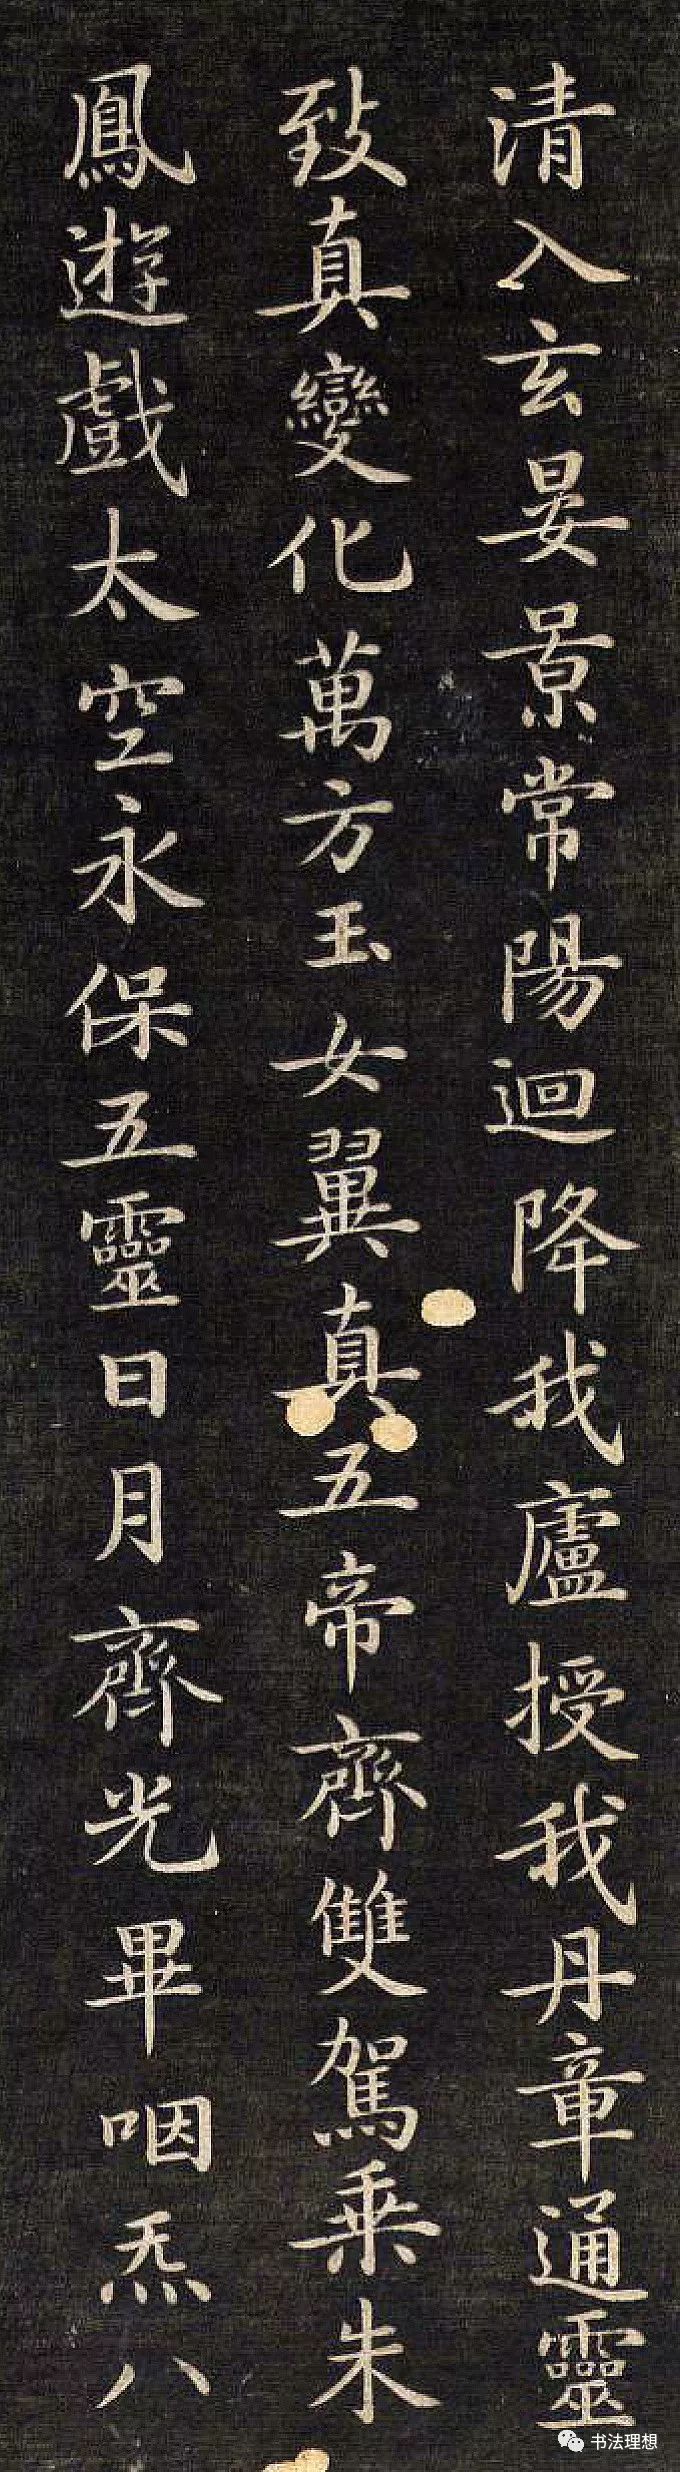 清入玄晏景常陽迴降我廬授我丹章通靈
致真變化萬方玉女翼真五帝齊雙駕乗朱
鳳遊戲太空永保五靈日月齊光畢咽炁八
书法理想